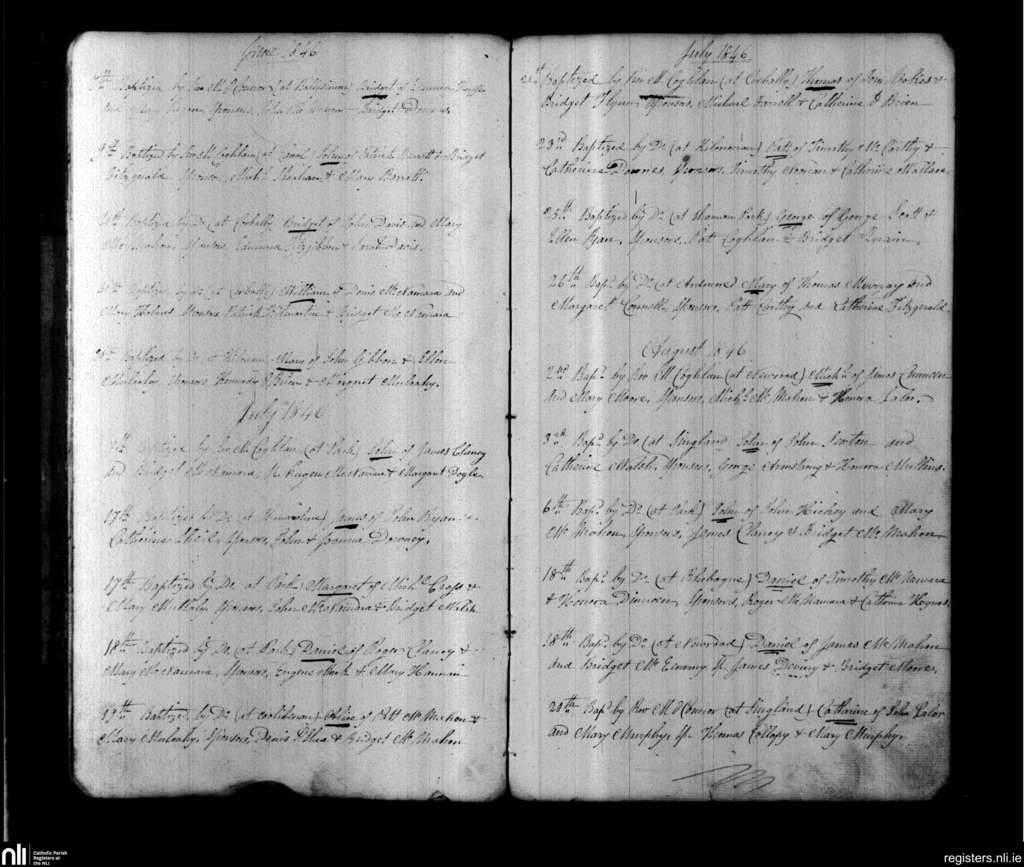 June 1846
Baptized by Rev. M. O'Connor (at Bridget of
Sponsors, Bridget
9th Baptized by Rev. M. Coghlan (at Canal) John of Patrick Barrett & Bridget
Fitzgerald Sponsors, Mich.l Sheehan & Mary Barrett.
Baptized by Do. (at Corbally Bridget of John Davis and Mary
Sponsors, Edmund Fitzgibbon & Sarah Davis.
Baptized by Do. (at Corbally) William of Denis McNamara and
Mary Holmes Sponsors Patrick & Bridget McNamara
Baptized by Do. at Mary of John Gibbon & Ellen
Mulcahy, Sponsors Kennedy O'Brien & Margaret Mulcahy.
July 1846
Baptized by Rev. M. Coghlan (at Park) John of James Clancy
and Bridget McNamara, Sp. Eugene McNamara & Margaret Doyle.
17th Baptized by Do. (at James of John Ryan &
Catherine Sheil, Sponsors, John & Joanna Downey.
17th Baptized by Do. at Park) Margaret of Mich.l Cross &
Mary Sponsors, John McNamara & Bridget
18th Baptized by Do. (at Park) Daniel of Roger Clancy &
Mary McNamara, Sponsors, Eugene & Mary Hannan
19th Baptized by Do. (at of Patt McMahon &
Mary Mulcahy, Sponsors, Denis O'Shea & Bridget McMahon
July 1846
Baptized by Rev. M. Coghlan (at Corbally) Thomas of Tom &
Bridget Flynn, Sponsors, Michael Farrell & Catherine O'Brien
23rd Baptized by Do. (at Kilmonan) Patt of Timothy McCarthy &
Catherine Downes, Sponsors, Timothy Noonan & Catherine Wallace.
25th Baptized by Do. (at Shannon Park) George of George Scott &
Ellen Ryan, Sponsors, Pat Coghlan & Bridget Quain.
26th Bap.d by Do. (at Mary of Thomas and
Margaret Connell, Sponsors, Patt Carthy and Catherine Fitzgerald.
August 1846
2nd Bap.d by Rev. M. Coghlan (at Newroad) Mich.l of James Dinneen
and Mary Moore, Sponsors, Mich.l McMahon & Honora Lalor.
3rd Bap.d by Do. (at Singland John of John and
Catherine Walsh, Sponsors, George Armstrong & Honora Mullins.
6th Bap.d by Do. (at Park) John of John Hickey and Mary
McMahon, Sponsors, James Clancy & Bridget McMahon
18th Bap.d by Do. (at Rhebogue) Daniel of Timothy McNamara
& Honora Dinneen, Sponsors, Roger McNamara & Catherine Heynes
18th Bap.d by Do. (at Newroad) Daniel of James McMahon
and Bridget McEnerny, Sp. James Deviny & Bridget Mowes.
Bap.d by Rev. M. O'Connor (at Singland) Catharine of John Lalor
and Mary Murphy, Sp. Thomas Collopy & Mary Murphy.
nli
Catholic Parish
Registers at
the NLI
registers.nli.ie